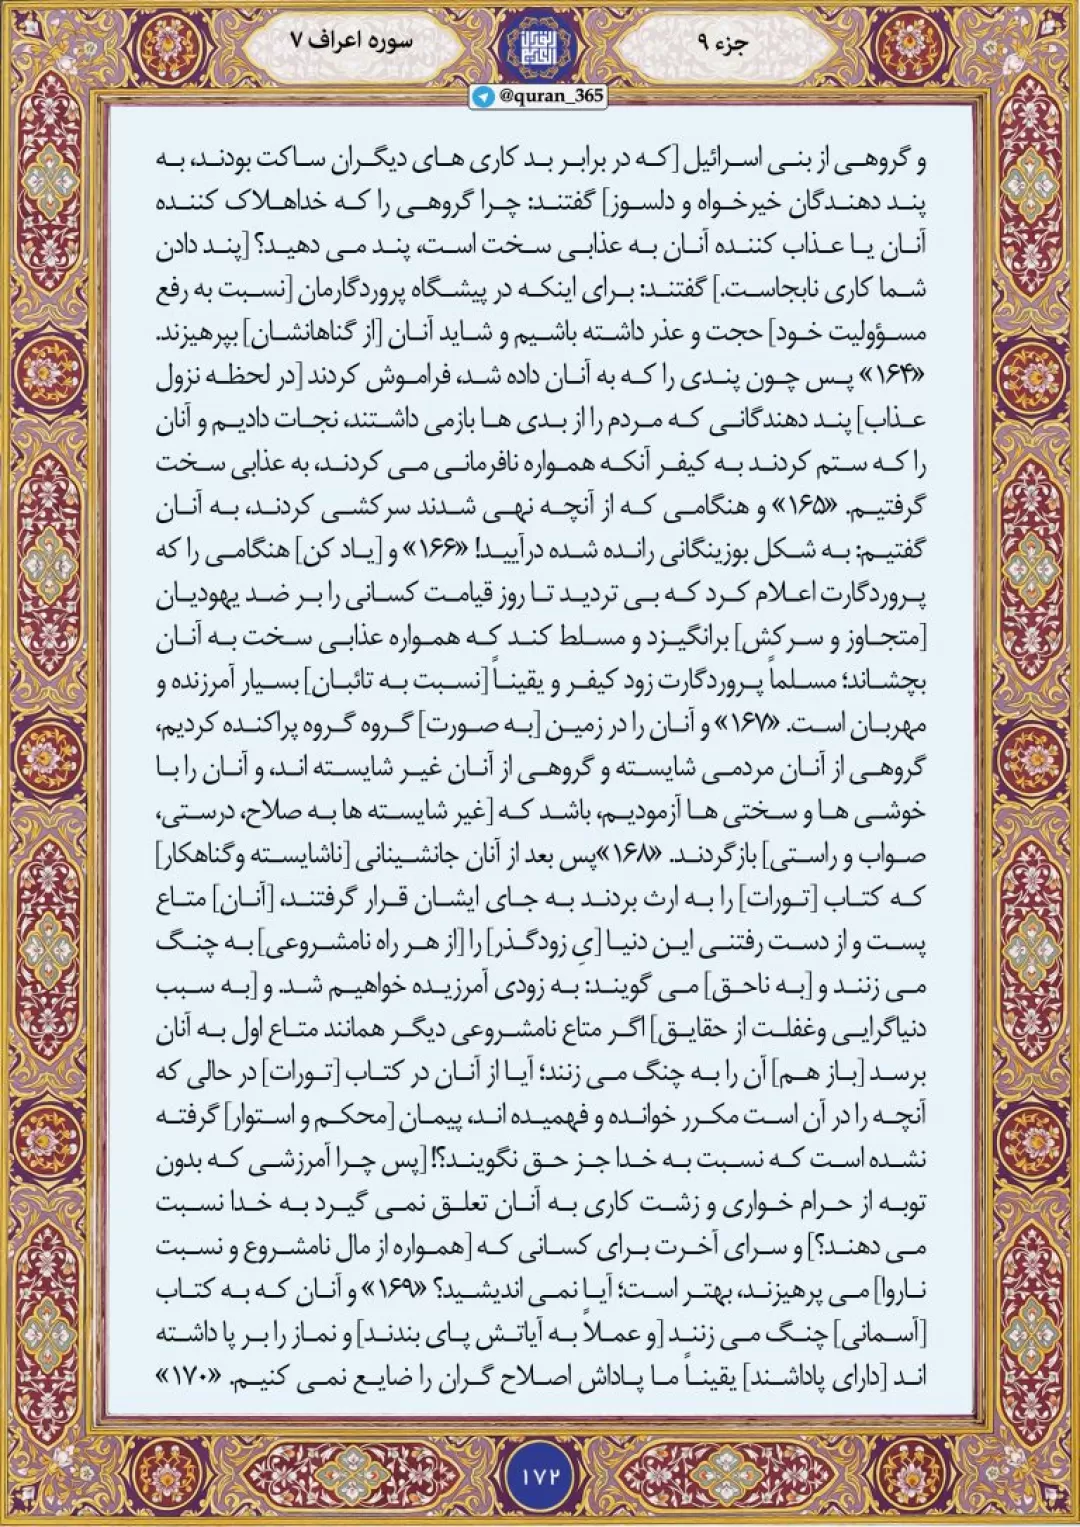 جزء ۹
سوره اعراف ۷
@quran_365
و گروهی از بنی اسرائیل [که در برابر بد کاری های دیگران ساکت بودند، به
پند دهندگان خیرخواه و دلسوز] گفتند: چرا گروهی را که خداهلاک کننده
آنان یا عذاب کننده آنان به عذابی سخت است، پند می دهید؟ [پند دادن
شما کاری نابجاست.] گفتند: برای اینکه در پیشگاه پروردگارمان [نسبت به رفع
مسؤولیت خود] حجت و عذر داشته باشیم و شاید آنان [از گناهانشان] بپرهیزند.
«۱۶۴» پس چون پندی را که به آنان داده شد، فراموش کردند [در لحظه نزول
عذاب] پند دهندگانی که مردم را از بدی ها بازمی داشتند، نجات دادیم و آنان
را که ستم کردند به کیفر آنکه همواره نافرمانی می کردند، به عذابی سخت
گرفتیم. «۱۶۵» و هنگامی که از آنچه نهی شدند سرکشی کردند، به آنان
گفتیم: به شکل بوزینگانی رانده شده درآیید! «۱۶۶» و [یاد کن] هنگامی را که
پروردگارت اعلام کرد که بی تردید تا روز قیامت کسانی را بر ضد یهودیان
[متجاوز و سرکش] برانگیزد و مسلط کند که همواره عذابی سخت به آنان
بچشاند؛ مسلماً پروردگارت زود کیفر و یقیناً [نسبت به تائبان] بسیار آمرزنده و
مهربان است. «۱۶۷» و آنان را در زمین [به صورت] گروه گروه پراکنده کردیم،
گروهی از آنان مردمی شایسته و گروهی از آنان غیر شایسته اند، و آنان را با
خوشی ها و سختی ها آزمودیم، باشد که [غیر شایسته ها به صلاح، درستی،
صواب و راستی] بازگردند. «۱۶۸»پس بعد از آنان جانشینانی [ناشایسته وگناهکار]
که کتاب [تورات] را به ارث بردند به جای ایشان قرار گرفتند، [آنان] متاع
پست و از دست رفتنی این دنیا [یِ زودگذر] را [از هر راه نامشروعی] به چنگ
می زنند و [به ناحق] می گویند: به زودی آمرزیده خواهیم شد. و [به سبب
دنیاگرایی وغفلت از حقایق] اگر متاع نامشروعی دیگر همانند متاع اول به آنان
برسد [باز هم] آن را به چنگ می زنند؛ آیا از آنان در کتاب [تورات] در حالی که
آنچه را در آن است مکرر خوانده و فهمیده اند، پیمان [محکم و استوار] گرفته
نشده است که نسبت به خدا جز حق نگویند؟! [پس چرا آمرزشی که بدون
توبه از حرام خواری و زشت کاری به آنان تعلق نمی گیرد به خدا نسبت
می دهند؟] و سرای آخرت برای کسانی که [همواره از مال نامشروع و نسبت
ناروا] می پرهیزند، بهتر است؛ آیا نمی اندیشید؟ «۱۶۹» و آنان که به کتاب
[آسمانی] چنگ می زنند [و عملاً به آیاتش پای بندند] و نماز را بر پا داشته
اند [دارای پاداشند] یقیناً ما پاداش اصلاح گران را ضایع نمی کنیم. «۱۷۰»
۱۷۲